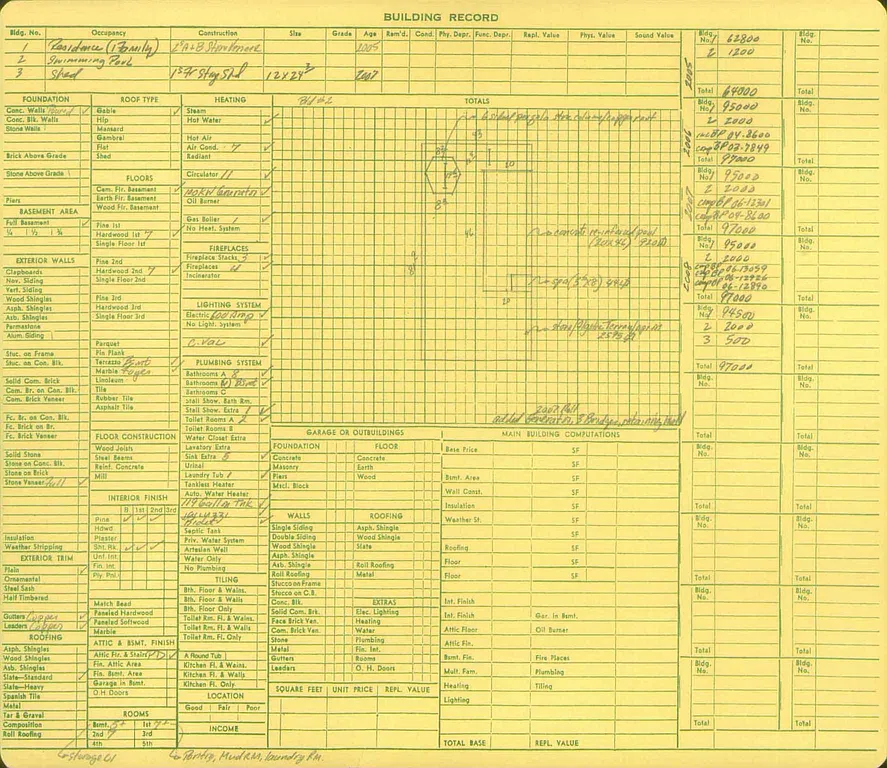 BUILDING RECORD
Bldg. No. Occupancy Construction Size Grade Age Rem'd. Cond. Phy. Depr. Func. Depr. Repl. Value Phys. Value Sound Value
1 Residence (1 Family) 2005
2 Swimming Pool
3 Shed 12x24 2007
FOUNDATION
Conc. Walls
Conc. Blk. Walls
Stone Walls
Brick Above Grade
Stone Above Grade
Piers
BASEMENT AREA
Full Basement
¼ ½ ¾
EXTERIOR WALLS
Clapboards
Nov. Siding
Vert. Siding
Wood Shingles
Asph. Shingles
Asb. Shingles
Permastone
Alum. Siding
Stuc. on Frame
Stuc. on Con. Blk.
Solid Com. Brick
Com. Br. on Con. Blk.
Com. Brick Veneer
Fc. Br. on Con. Blk.
Fc. Brick on Br.
Fc. Brick Veneer
Solid Stone
Stone on Conc. Blk.
Stone on Brick
Stone Veneer
Insulation
Weather Stripping
EXTERIOR TRIM
Plain
Ornamental
Steel Sash
Half Timbered
Gutters Copper
Leaders Copper
ROOFING
Asph. Shingles
Wood Shingles
Asb. Shingles
Slate—Standard
Slate—Heavy
Spanish Tile
Metal
Tar & Gravel
Composition
Roll Roofing
ROOF TYPE
Gable
Hip
Mansard
Gambrel
Flat
Shed
FLOORS
Cem. Flr. Basement
Earth Flr. Basement
Wood Flr. Basement
Pine 1st
Hardwood 1st 7
Single Floor 1st
Pine 2nd
Hardwood 2nd 7
Single Floor 2nd
Pine 3rd
Hardwood 3rd
Single Floor 3rd
Parquet
Pin Plank
Terrazzo
Marble
Linoleum
Tile
Rubber Tile
Asphalt Tile
FLOOR CONSTRUCTION
Wood Joists
Steel Beams
Reinf. Concrete
Mill
INTERIOR FINISH
B 1st 2nd 3rd
Pine
Hdwd
Plaster
Sht. Rk.
Unf. Int.
Fin. Int.
Ply. Pnl.
Match Bead
Paneled Hardwood
Paneled Softwood
Marble
ATTIC & BSMT. FINISH
Attic Flr. & Stairs
Fin. Attic Area
Fin. Bsmt. Area
Garage in Bsmt.
O.H. Doors
ROOMS
Bsmt. 5+ 1st 7+
2nd 7 3rd
4th 5th
HEATING
Steam
Hot Water
Hot Air
Air Cond. 7
Radiant
Circulator 11
Oil Burner
Gas Boiler 1
No Heat. System
FIREPLACES
Fireplace Stacks 3
Fireplaces 4
Incinerator
LIGHTING SYSTEM
Electric 600 Amp
No Light. System
C. Vac
PLUMBING SYSTEM
Bathrooms A 8
Bathrooms
Bathrooms C
Stall Show. Bath Rm.
Stall Show. Extra 1
Toilet Rooms A 2
Toilet Rooms B
Water Closet Extra
Lavatory Extra
Sink Extra 5
Urinal
Laundry Tub 1
Tankless Heater
Auto. Water Heater
119 Gallon Tnk
Septic Tank
Priv. Water System
Artesian Well
Water Only
No Plumbing
TILING
Bth. Floor & Wains.
Bth. Floor & Walls
Bth. Floor Only
Toilet Rm. Fl. & Wains.
Toilet Rm. Fl. & Walls
Toilet Rm. Fl. Only
Around Tub
Kitchen Fl. & Wains.
Kitchen Fl. & Walls
Kitchen Fl. Only
LOCATION
Good Fair Poor
INCOME
Storage
Pantry, Mud RM, Laundry Rm.
TOTALS
Bld #2
43
20
46
concrete reinforced pool
(20x46) 920
added Generator, 3 Bridges, retaining wall
GARAGE OR OUTBUILDINGS
FOUNDATION FLOOR
Concrete Concrete
Masonry Earth
Piers Wood
Mscl. Block
WALLS ROOFING
Single Siding Asph. Shingle
Double Siding Wood Shingle
Wood Shingle Slate
Asph. Shingle
Asb. Shingle Roll Roofing
Roll Roofing Metal
Stucco on Frame
Stucco on C.B.
Conc. Blk. EXTRAS
Solid Com. Brk. Elec. Lighting
Face Brick Ven. Heating
Com. Brick Ven. Water
Stone Plumbing
Metal Fin. Int.
Gutters Rooms
Leaders O. H. Doors
SQUARE FEET UNIT PRICE REPL. VALUE
MAIN BUILDING COMPUTATIONS
Base Price SF
SF
Bsmt. Area SF
Wall Const. SF
Insulation SF
Weather St. SF
SF
Roofing SF
Floor SF
Floor SF
Int. Finish
Int. Finish Gar. in Bsmt.
Attic Floor Oil Burner
Attic Fin.
Bsmt. Fin. Fire Places
Mult. Fam. Plumbing
Heating Tiling
Lighting
TOTAL BASE REPL. VALUE
2005
Bldg. No. 1 62800
2 1200
Total 64000
2006
Bldg. No. 1 95000
2 2000
inc BP 04-8600
comp BP 03-7849
Total 97000
2007
Bldg. No. 1 95000
2 2000
comp BP 06-12301
comp BP 04-8600
Total 97000
2008
Bldg. No. 1 95000
2 2000
comp BP 06-13059
06-12926
06-12890
Total 97000
Bldg. No. 1 94500
2 2000
3 500
Total 97000
Bldg. No.
Total
Bldg. No.
Total
Bldg. No.
Total
Bldg. No.
Total
Bldg. No.
Total
Bldg. No.
Total
Bldg. No.
Total
Bldg. No.
Total
Bldg. No.
Total
Bldg. No.
Total
Bldg. No.
Total
Bldg. No.
Total
Bldg. No.
Total
Bldg. No.
Total